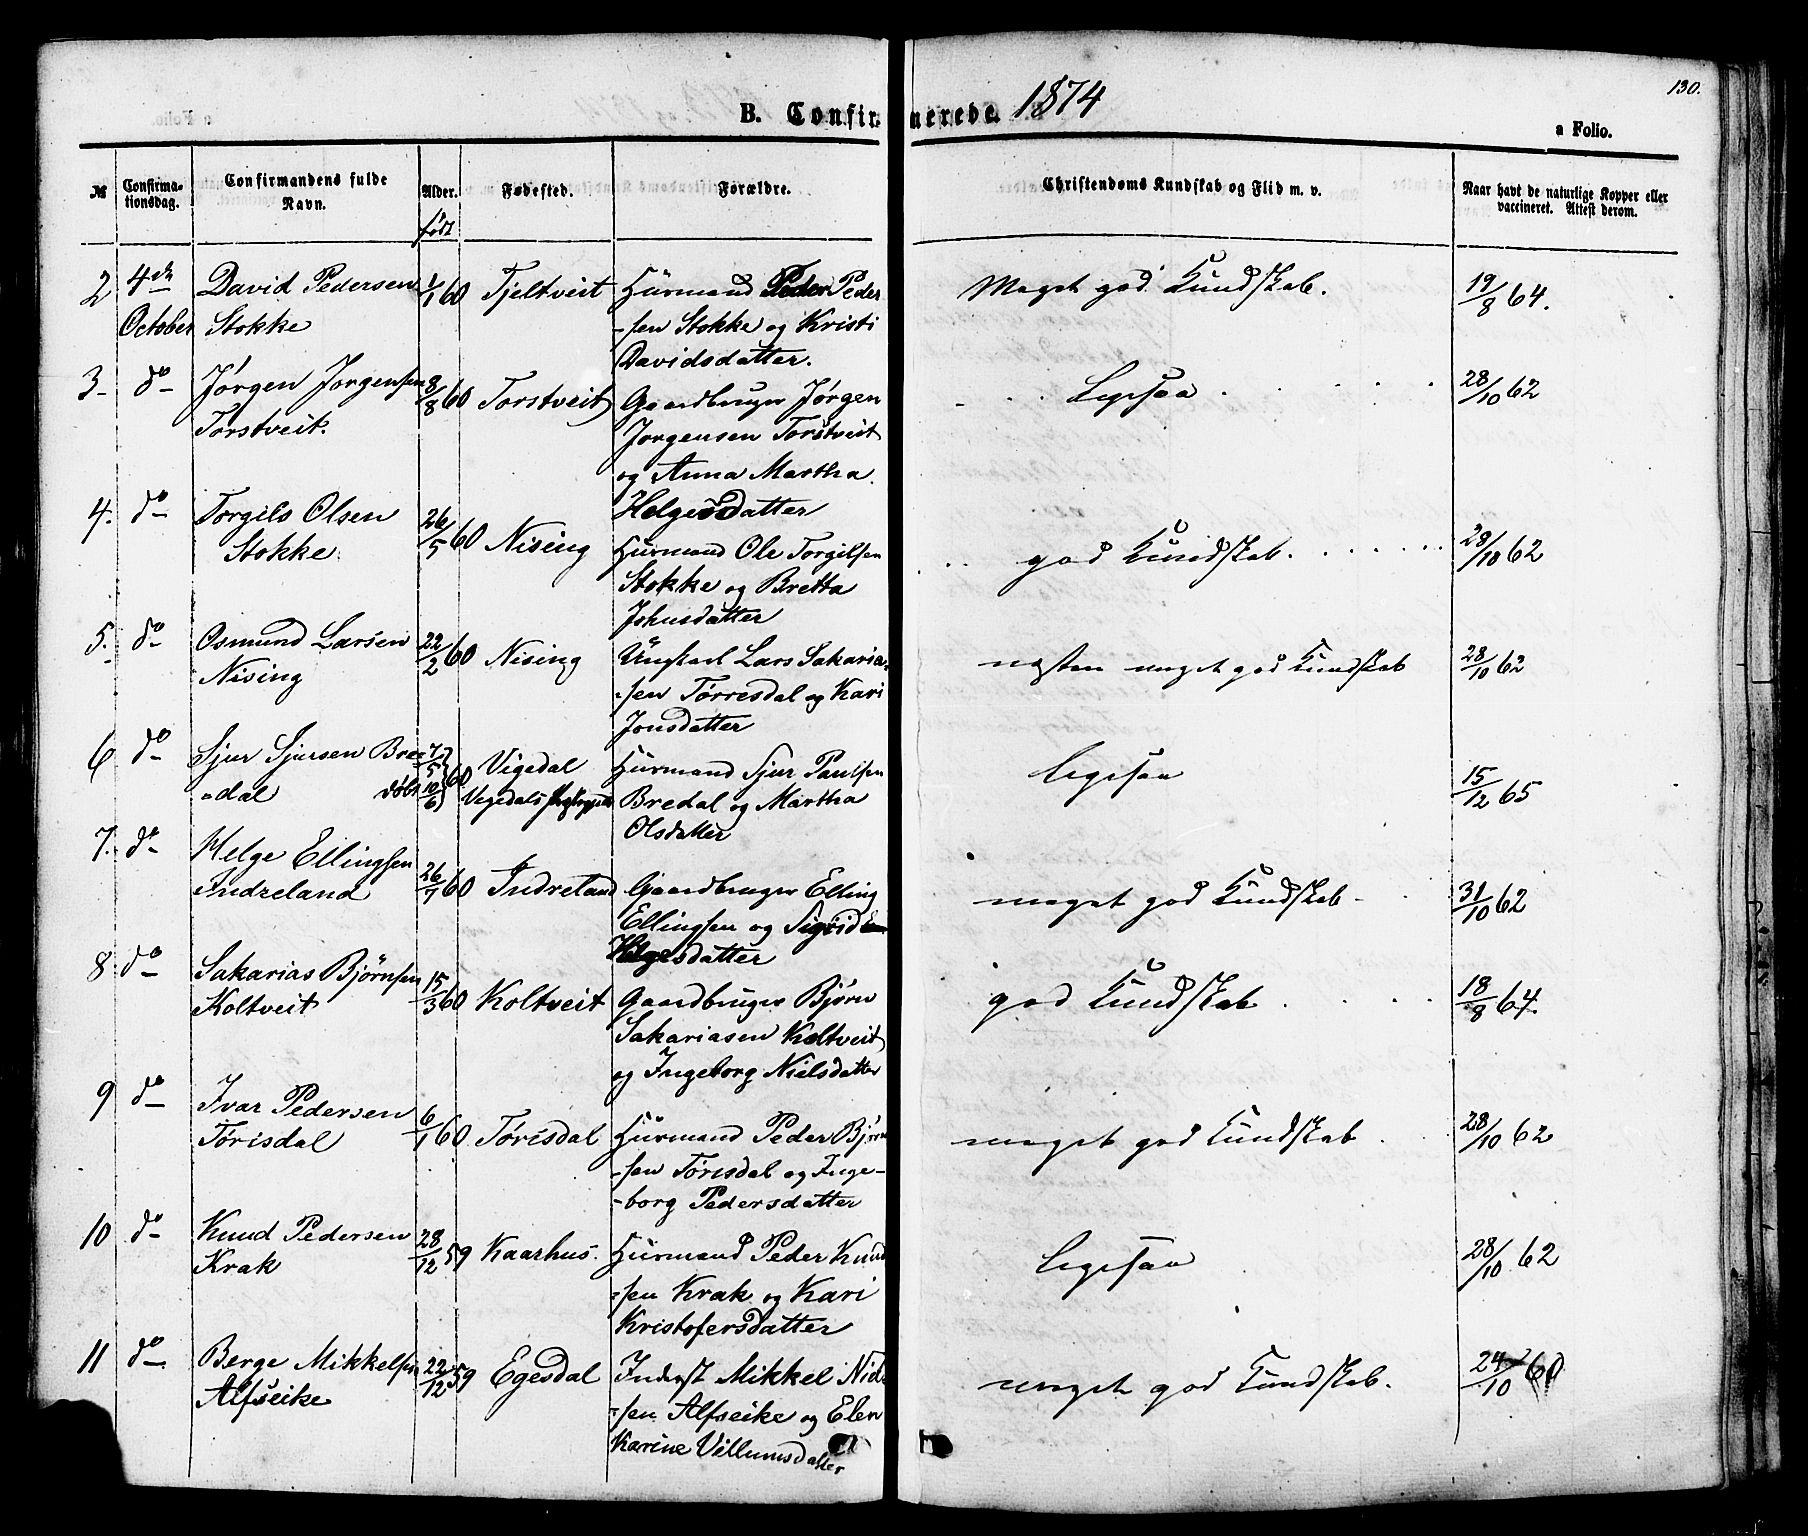 130.
B. Confirmerede. 1874
a Folio.
№ Confirma-
tionsdag. Confirmandens fulde
Navn. Alder. Fødested. Forældre. Christendoms Kundskab og Flid m. v. Naar havt de naturlige Kopper eller
vaccineret. Attest derom.
født
2 4de David Pedersen 1/1 60 Tjeltveit Huusmand Peder Peder Meget god Kundskab. 19/8 64.
October Stokke -sen Stokke og Kristi
Davidsdatter.
3- do Jørgen Jorgensen 8/8 60 Torstveit Gaardbruger Jørgen Ligesaa 28/10 62
Torstveit. Jorgensen Torstveit
og Anna Martha.
Helgesdatter
4. do Torgils Olsen 26/5 60 Nising Huusmand Ole Torgilsen god Kundskab. 28/10 62
Stokke. Stokke og Bretta
Johnsdatter
5. do Osmund Larsen 22/2 60 Nising Ungkarl Lars Sakaria- næsten meget god Kundskab 28/10 62
Nising -sen Tørresdal og Kari
Jonsdatter
6 do Sjur Sjursen Bre- 7/5 60 Vigedal Huusmand Sjur Paulsen Ligesaa 15/12 65
-dal døbt 10/6 Vegedals Bredal og Martha
Olsdatter
7. do Helge Ellingsen 26/1 60 Indreland Gaardbruger Elling meget god Kundskab 31/10 62
Indreland Ellingsen og Sigrid
Helgesdatter
8 do Sakarias Bjørnsen 15/3 60 Koltveit Gaardbruger Bjørn god Kundskab 18/8 64.
Koltveit Sakariasen Koltveit
og Ingeborg Nielsdatter
9 do Ivar Pedersen 6/1 60 Tørisdal Huusmand Peder Bjørn meget god Kundskab 28/10 62
Tørisdal -sen Tørisdal og Inge-
-borg Pedersdatter
10 do Knud Pedersen 28/12 59 Kaarhus. Huusmand Peder Knud Ligesaa 28/10 62
Krak -sen Krak og Kari
Kristofersdatter
11 do Berge Mikkelsen 22/12 59 Egesdal Inderst Mikkel Niel meget god Kundskab. 24/10 60
Alfseike -sen Alfseike og Elen
Karine Villumsdatter